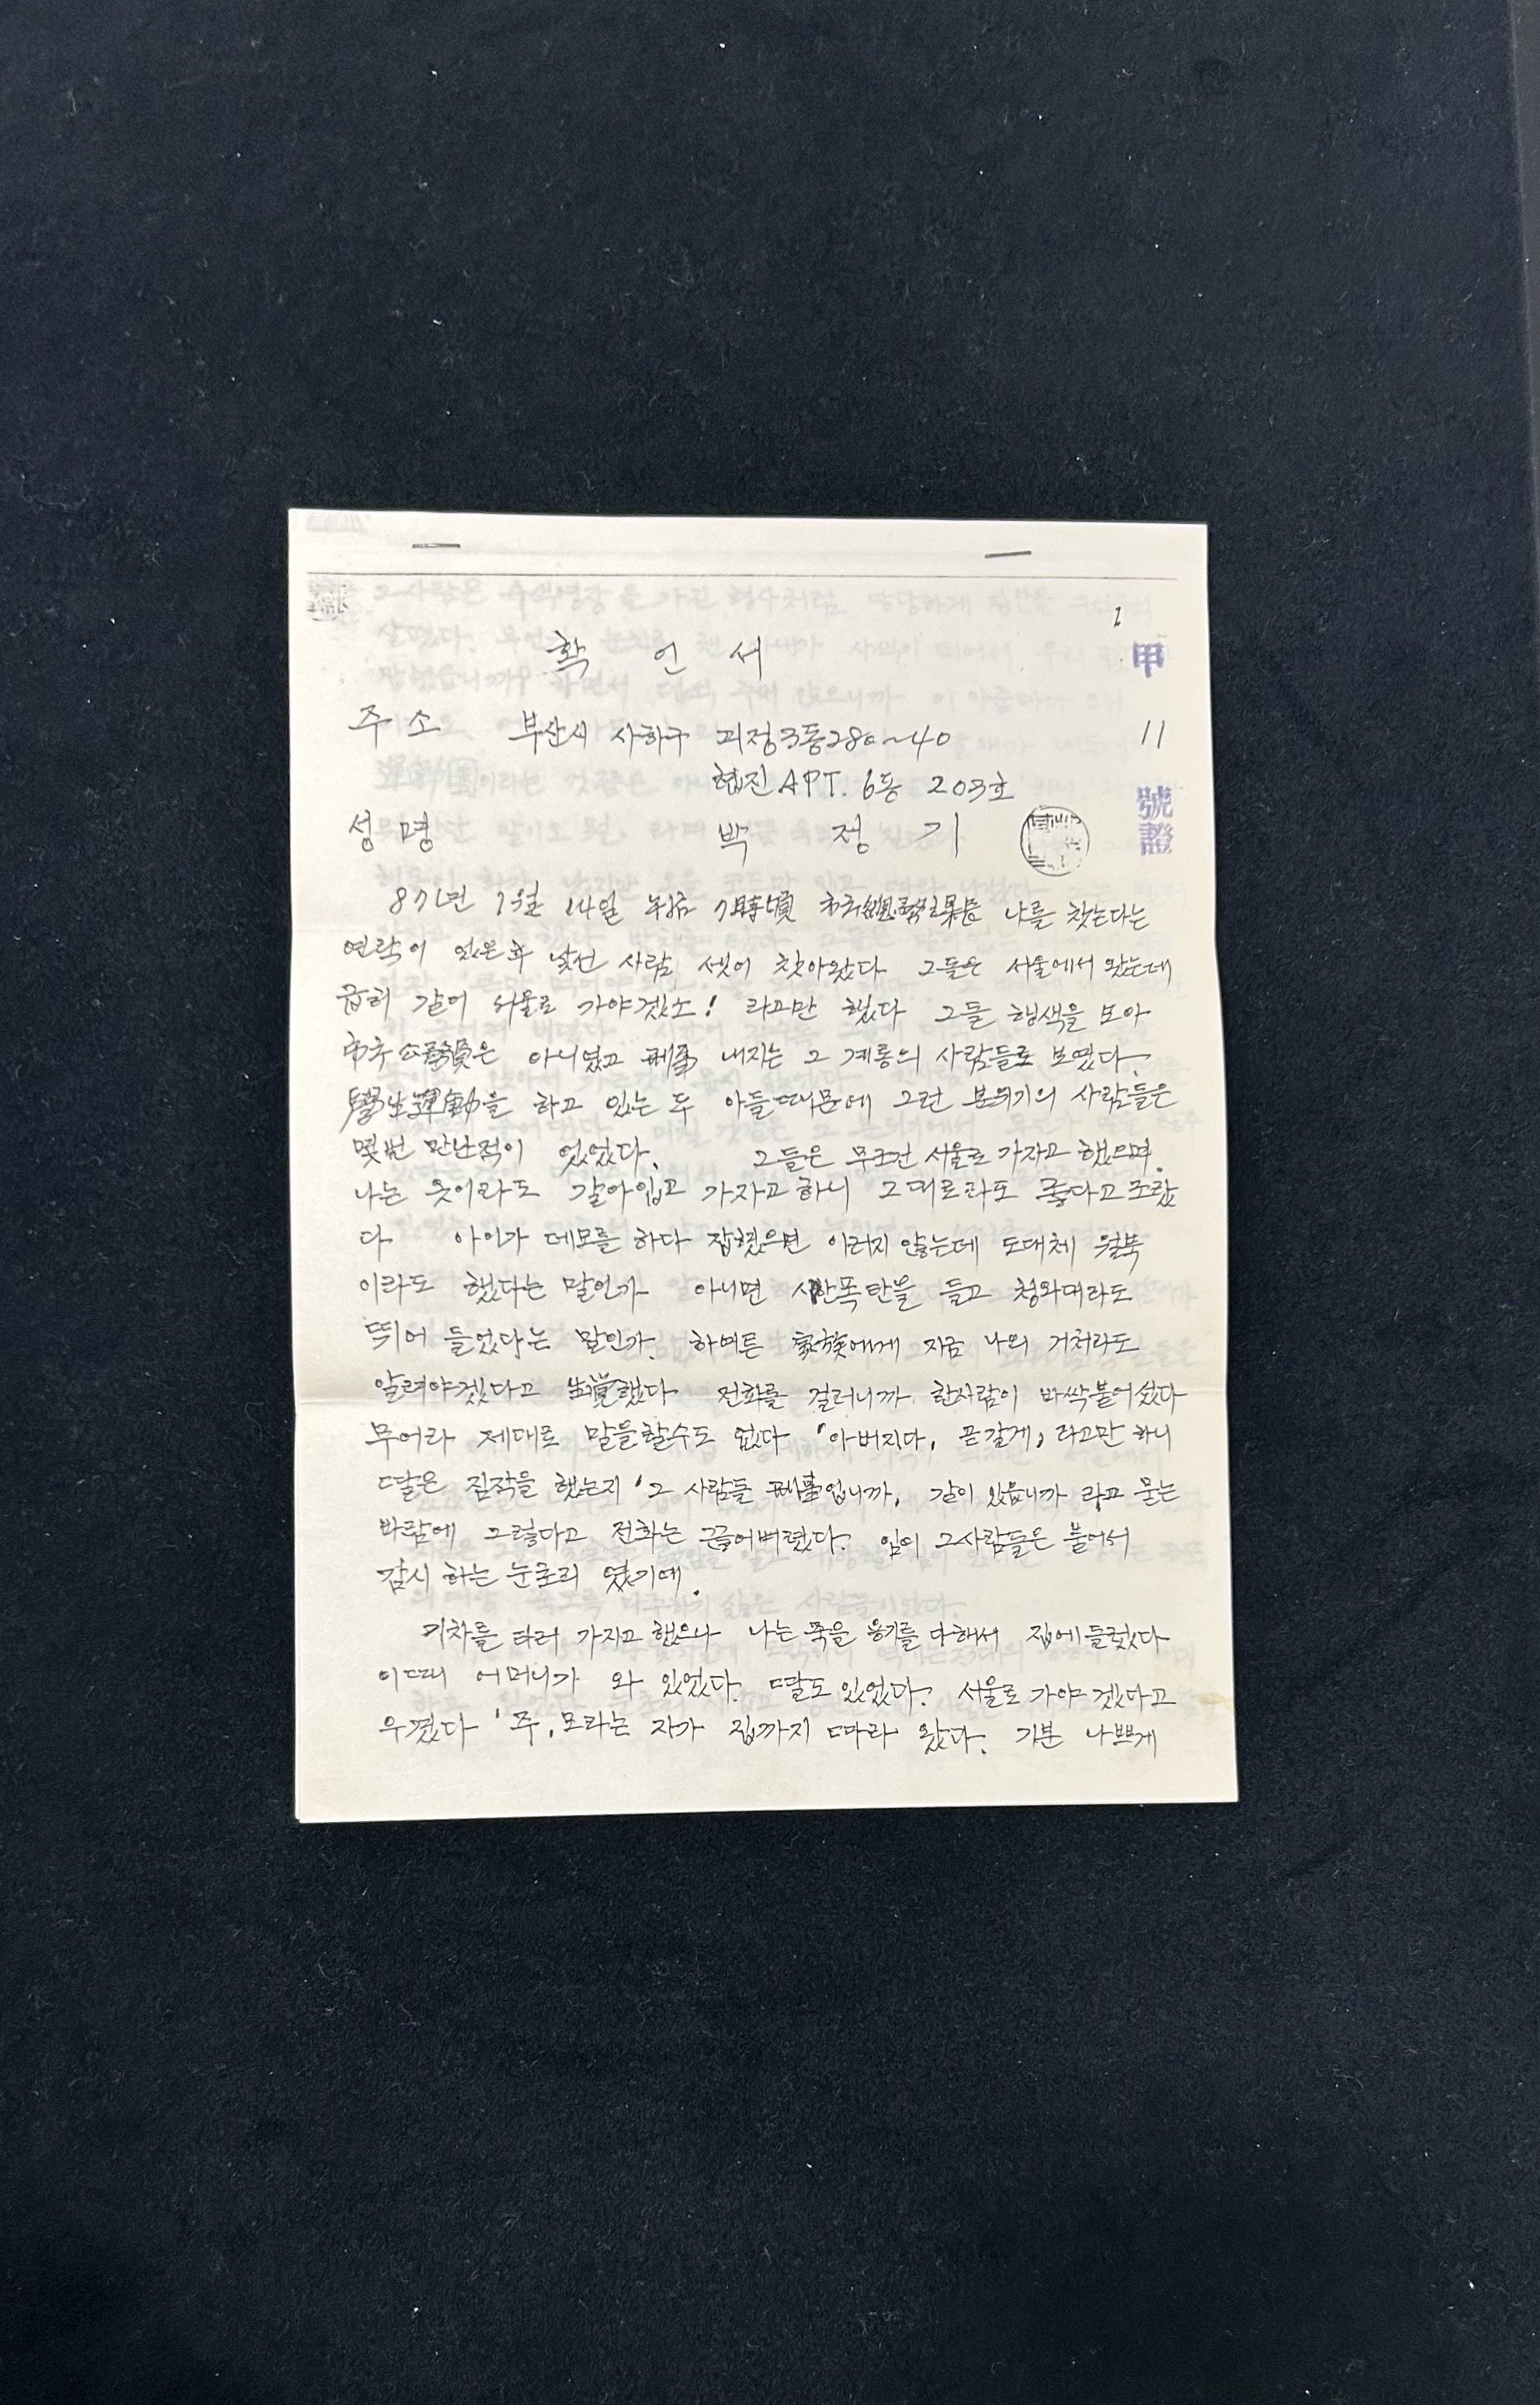 1
甲
11
號
證
확 인 서
주 소 부산시 사하구 괴정3동 280~40
협진 APT. 6동 203호
성 명 박 정 기
87년 1월 14일 午后 7時頃 나를 찾는다는
연락이 있은後 낯선 사람 셋이 찾아왔다 그들은 서울에서 왔는데
급히 같이 서울로 가야겠소! 라고만 했다 그들 행색을 보아
公務員은 아니였고 刑事 내지는 그 계통의 사람들로 보였다.
學生運動을 하고 있는 두 아들때문에 그런 분위기의 사람들은
몇번 만난적이 있었다. 그들은 무조건 서울로 가자고 했으며.
나는 옷이라도 갈아입고 가자고 하니 그대로라도 좋다고 조랐
다 아이가 데모를 하다 잡혔으면 이러지 않는데 도대체 월북
이라도 했다는 말인가 아니면 시한폭탄을 들고 청와대라도
뛰어 들었다는 말인가. 하여튼 家族에게 지금 나의 거처라도
알려야겠다고 生覺했다 전화를 걸러니까 한사람이 바싹붙어섰다
무어라 제대로 말을할수도 없다 '아버지다, 곧갈게, 라고만 하니
딸은 짐작을 했는지 '그 사람들 刑事입니까, 같이 있읍니까 라고 묻는
바람에 그렇다고 전화는 끊어버렸다. 임이 그사람들은 붙어서
감시 하는 눈초리 였기에.
기차를 타러 가자고 했으나 나는 죽을 용기를 다해서 집에들렀다
이때 어머니가 와 있었다. 딸도 있었다. 서울로 가야 겠다고
우겼다 '주, 모라는 자가 집까지 따라 왔다. 기분 나쁘게